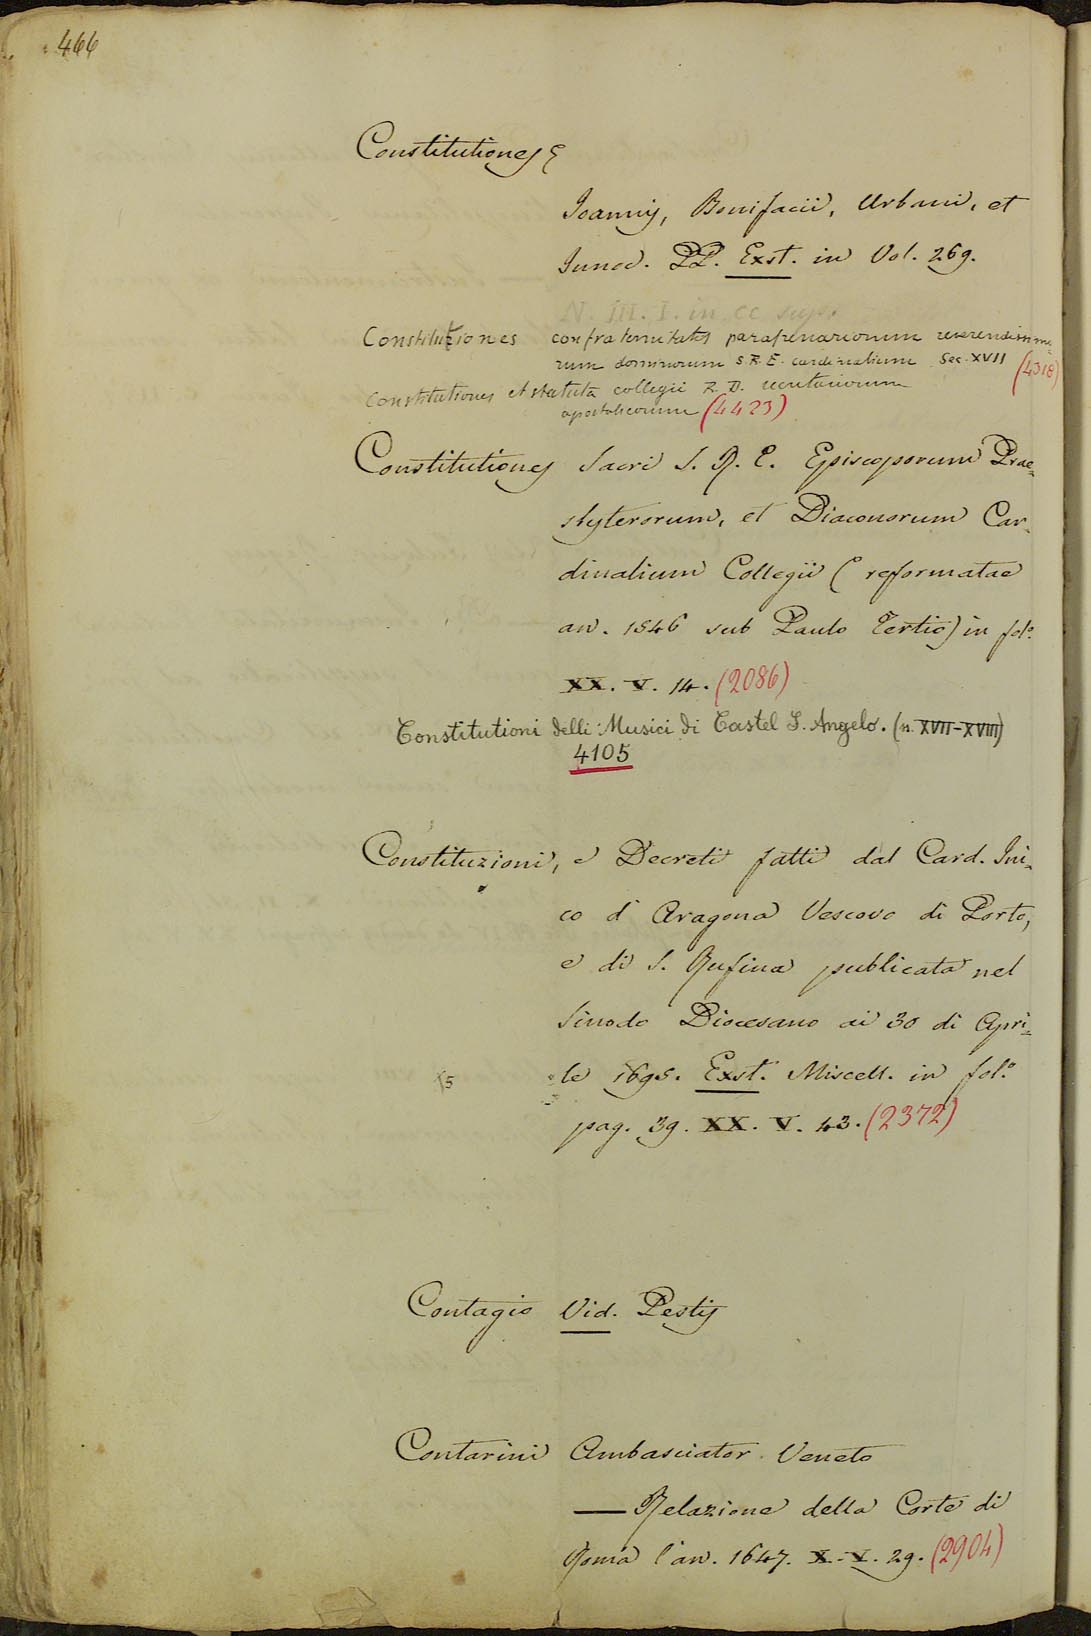 466
Constitutiones
Joannis, Bonifacii, Urbani, et
Innoc. PP. Exst. in Vol. 269.
N. III. I. in cc
Constitutiones confraternitatis parafrenariorum reverendissimo-
rum dominorum S.R.E. cardinalium Sec. XVII (4318)
Constitutiones et statuta collegii R. D. secretariorum
apostolicorum (4423)
Constitutiones Sacri S. R. E. Episcoporum Prae-
sbyterorum, et Diaconorum Car-
dinalium Collegii (reformatae
an. 1546 sub Paulo Tertio) in fol.º
XX. V. 14. (2086)
Constitutioni delli Musici di Castel S. Angelo. (n. XVII-XVIII)
4105
Constituzioni, e Decreti fatti dal Card. Ini-
co d'Aragona Vescovo di Porto,
e di S. Rufina publicata nel
Sinodo Diocesano ai 30 di Apri-
le 1695. Exst. Miscell. in fol.º
5
pag. 39. XX. V. 43. (2372)
Contagio Vid. Pestis
Contarini Ambasciator Veneto
— Relazione della Corte di
Roma l'an. 1647. X. V. 29. (2904)